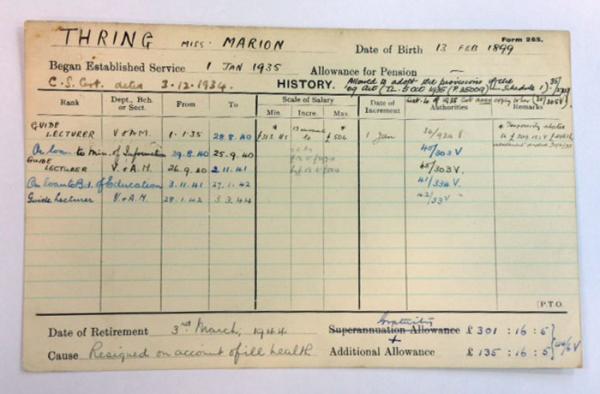 THRING MISS. MARION
Form 265.
Date of Birth 13 FEB 1899
Began Established Service 1 JAN 1935 Allowance for Pension
C.S. Cert. dated 3.12.1934. HISTORY.
Allowed to adopt the provisions of the
Rank Dept., Bch. or Sect. From To Scale of Salary Date of Increment Authorities Remarks
Min Incre. Max
GUIDE
LECTURER V & A.M. 1.1.35 28.8.40 1 Jan 34/924 V
On loan to Min. of Information 29.8.40 25.9.40 45/303 V.
GUIDE
LECTURER V. & A.M. 26.9.40 2.11.41 45/303 V.
On loan to Bd. of Education 3.11.41 27.1.42 41/334 V.
Guide Lecturer V & A.M. 28.1.42 3.3.44 42/33 V
P.T.O.
Gratuity
Date of Retirement 3rd March, 1944 Superannuation Allowance £ 301 : 16 : 5
+
Cause Resigned on account of ill health Additional Allowance £ 135 : 16 : 5